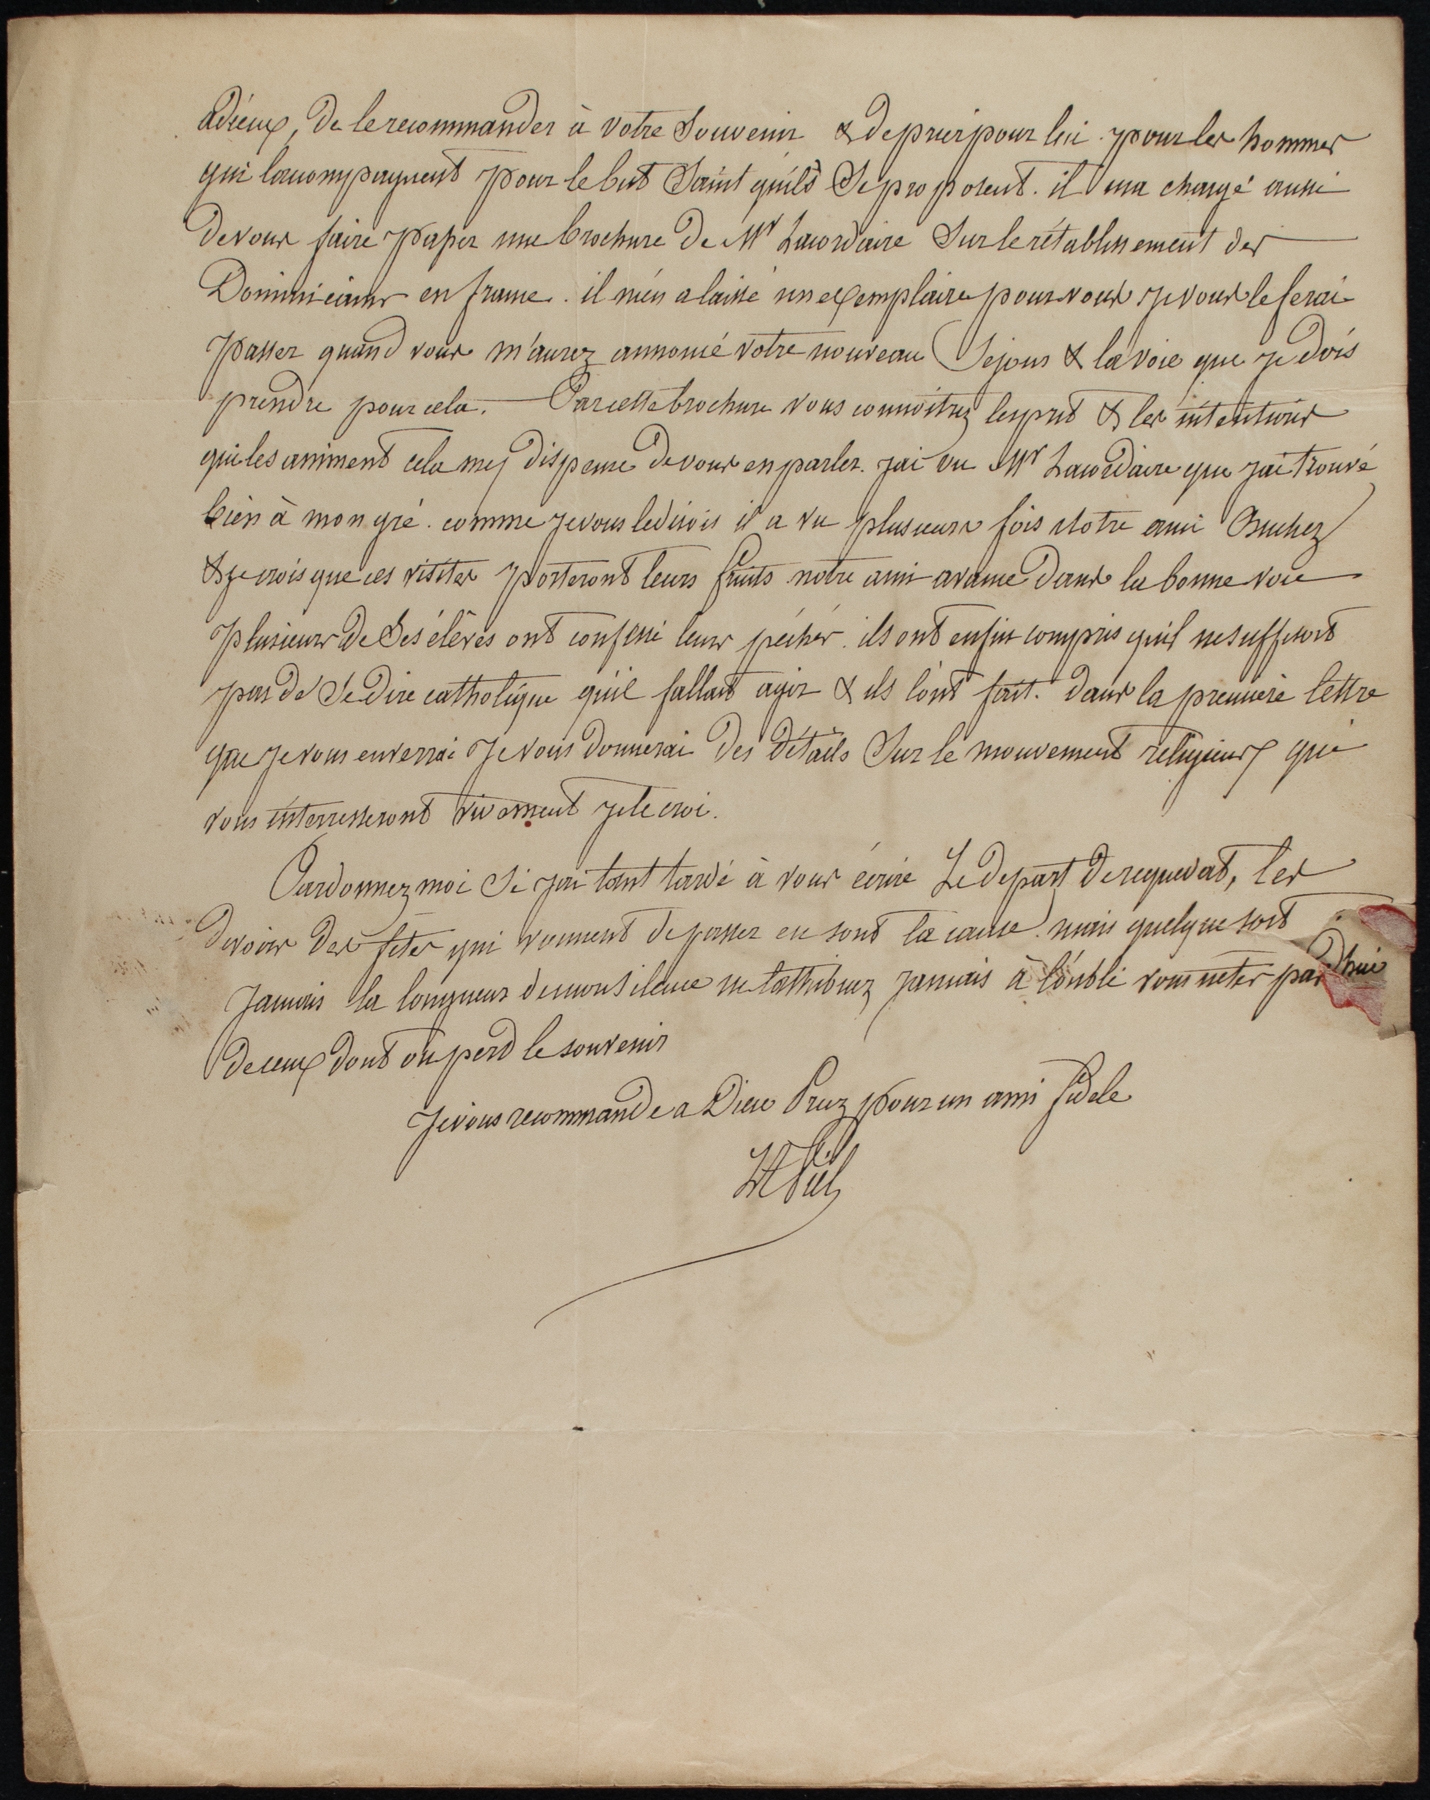 adieux, de le recommander à votre Souvenir & de prier pour lui. pour les hommes
qui l'accompagnent pour le but Saint qu'ils Se proposent. il m'a chargé aussi
de vous faire passer une brochure de Mr Lacordaire Sur le rétablissement des
Dominicains en france. il m'en a laissé un exemplaire pour vous je vous le ferai
passer quand vous m'aurez annoncé votre nouveau Séjour & la voie que je dois
prendre pour cela. — Par cette brochure vous connoitrez l'esprit & les intentions
qui les animent cela me dispense de vous en parler. j'ai vu Mr Lacordaire que j'ai trouvé
bien à mon gré. comme je vous le disois il a vu plusieurs fois Notre ami Buchez
& je crois que ces visites porteront leurs fruits notre ami avance dans la bonne voie
plusieurs de Ses élèves ont confessé leurs péchés. ils ont enfin compris qu'il ne suffisoit
pas de Se dire catholique qu'il fallait agir & ils l'ont fait. dans la première lettre
que je vous enverrai je vous donnerai des détails Sur le mouvement religieux qui
vous interresseront vivement je le croi.
Pardonnez moi Si j'ai tant tardé à vous écrire Le départ de requedat, les
devoirs des fêtes qui viennent de passer en sont la cause. mais quelque soit
jamais la longueur de mon silence ne l'attribuez jamais à l'oubli vous n'êtes pas
de ceux dont on perd le souvenir
Je vous recommande a Dieu Priez pour un ami fidele
Piel